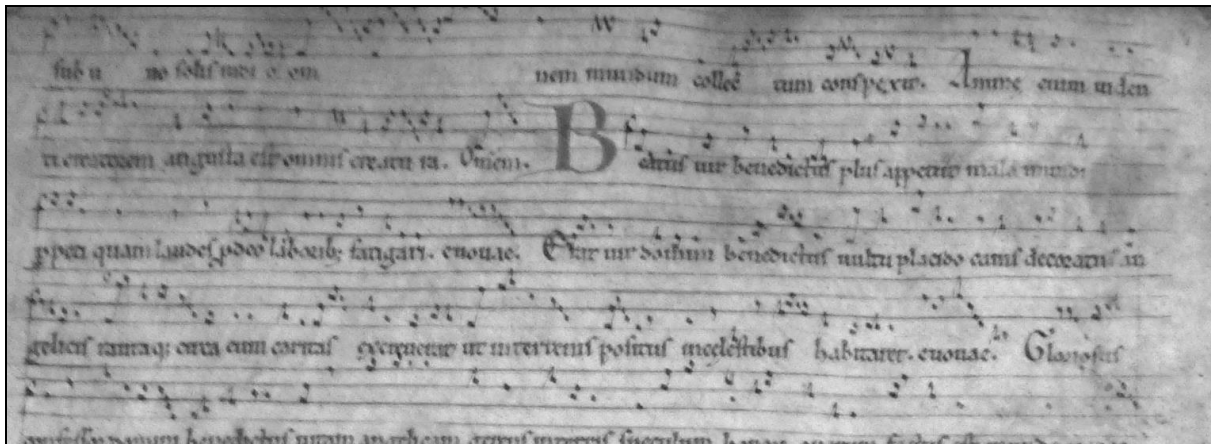 sub u no solis radio om nem mundum collec tum conspexit. Anime enim uiden
ti creatorem angusta est omnis creatu ra. Omnem. B eatus uir benedictus plus appetiit mala mundi
ppeti quam laudes p deo laborib; fatigari. euouae. Erat uir domini benedictus uultu placido canis decoratus an
gelicis tantaq; circa eum caritas excreuerat ut in terrenis positus in celestibus habitaret. euouae. Gloriosus
benedictus uitam angelicam